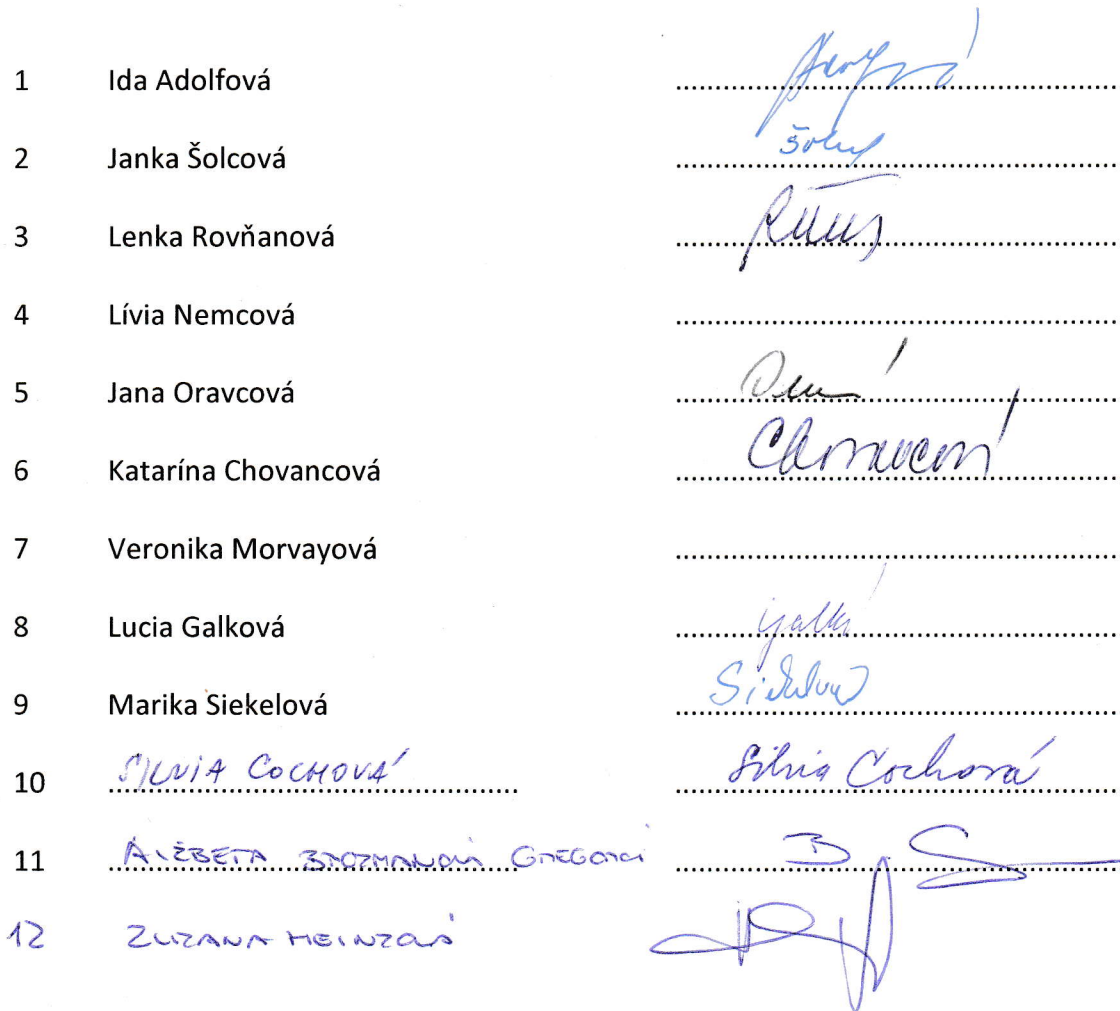 1 Ida Adolfová
2 Janka Šolcová Šolcj
3 Lenka Rovňanová
4 Lívia Nemcová
5 Jana Oravcová
6 Katarína Chovancová Chovancová
7 Veronika Morvayová
8 Lucia Galková
9 Marika Siekelová Siekelová
10 SILVIA COCHOVÁ Silvia Cochová
11 ALŽBETA BROZMANOVÁ GREGOROVÁ
12 ZUZANA HEINZOVÁ